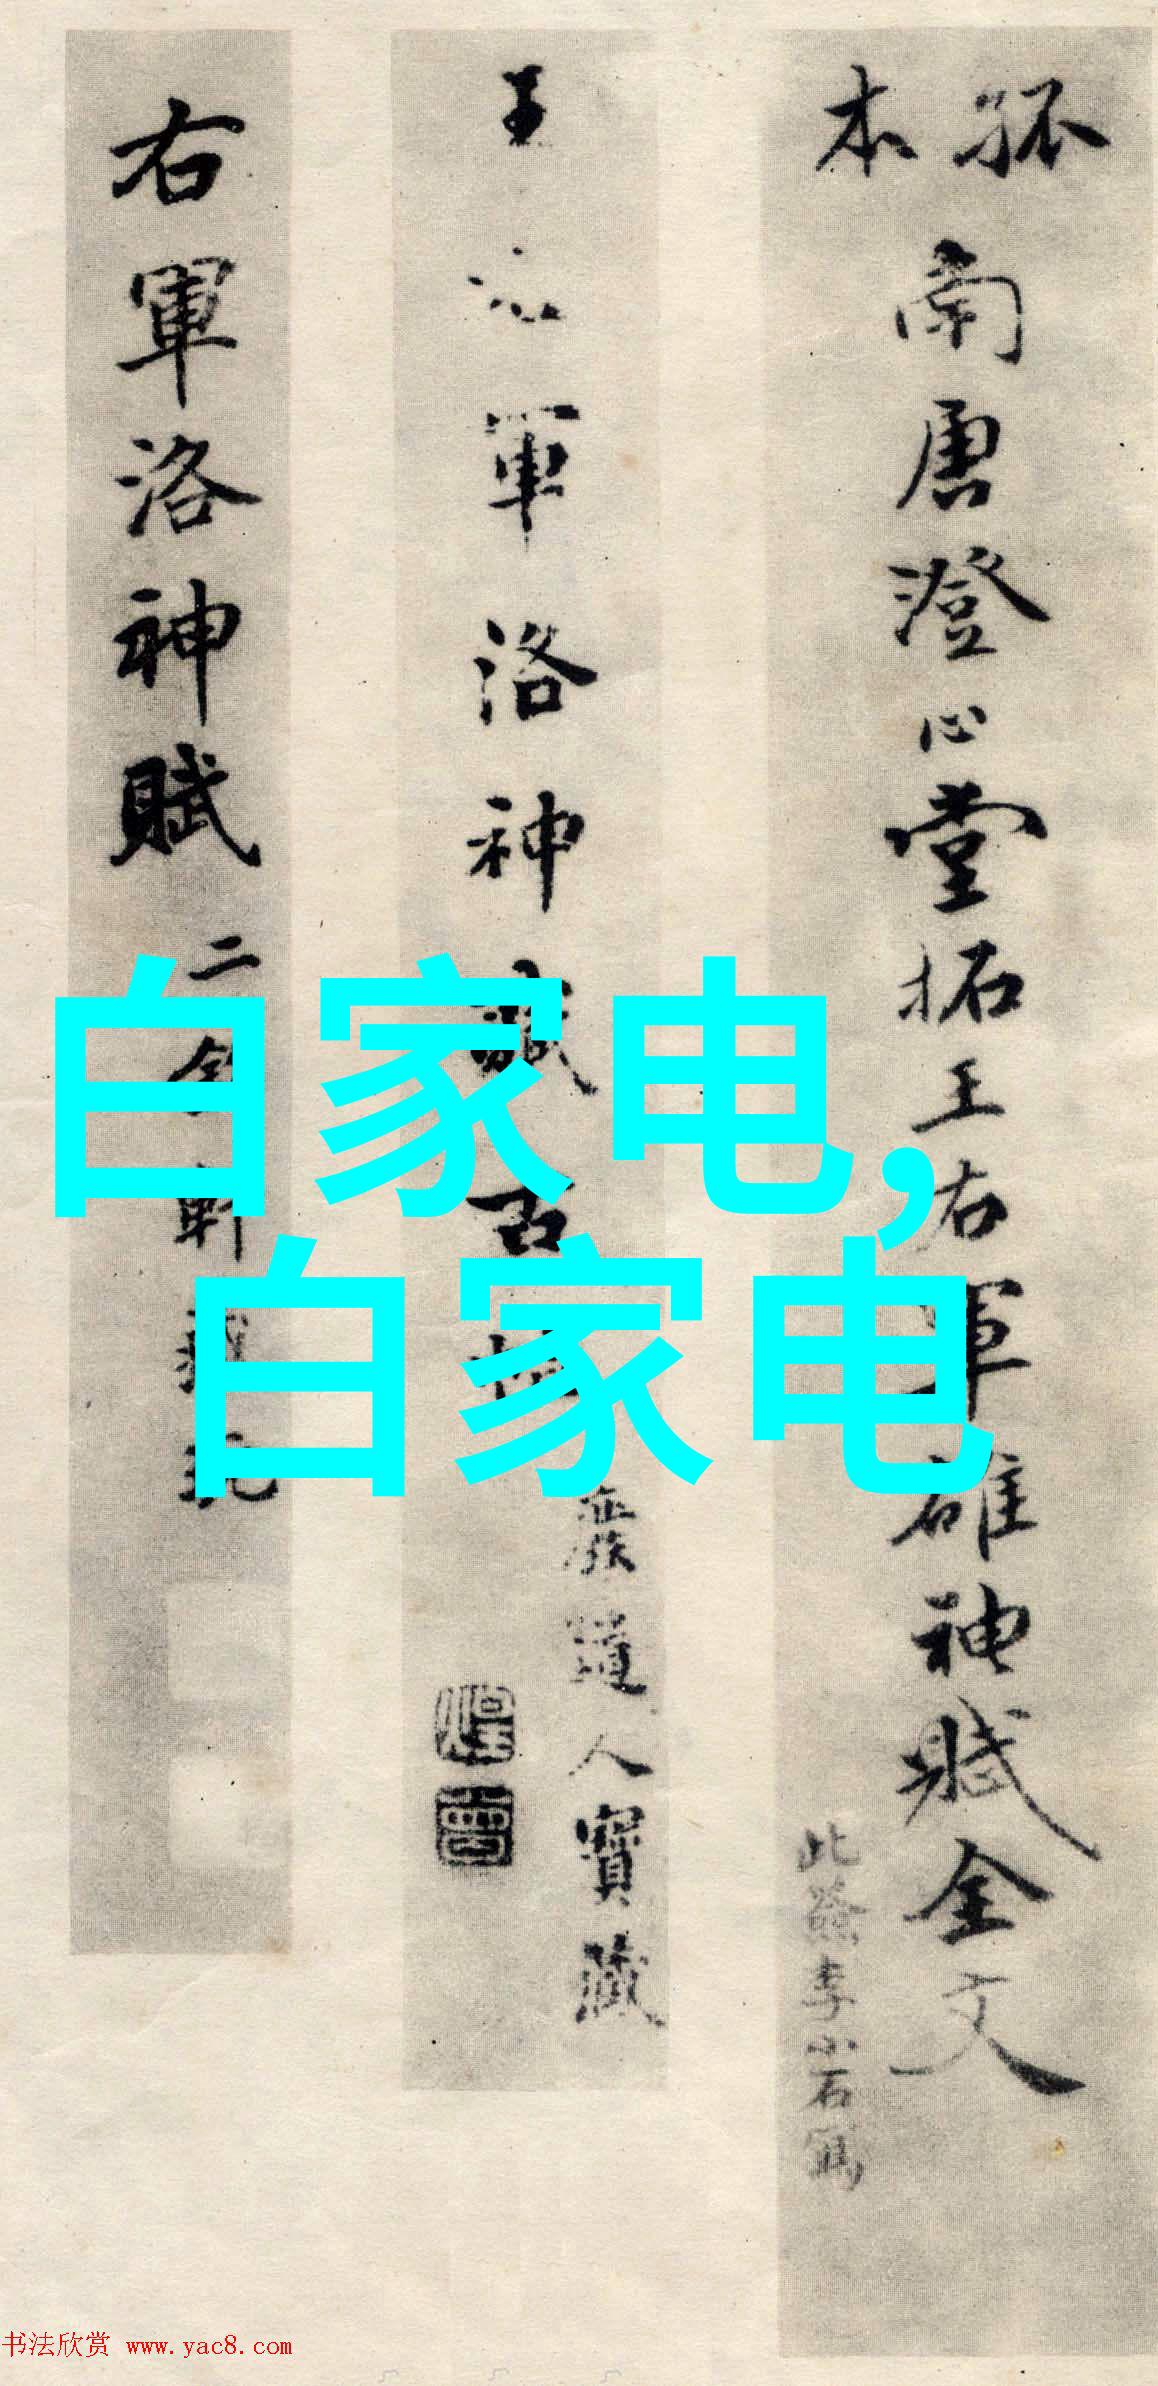 孤本
南唐澄心堂拓王右軍雒神賦全文
此籤李小石寫
王 軍洛神賦古
道人寶藏
右軍洛神賦
二
白家电,
白家电
书法欣赏 www.yac8.com